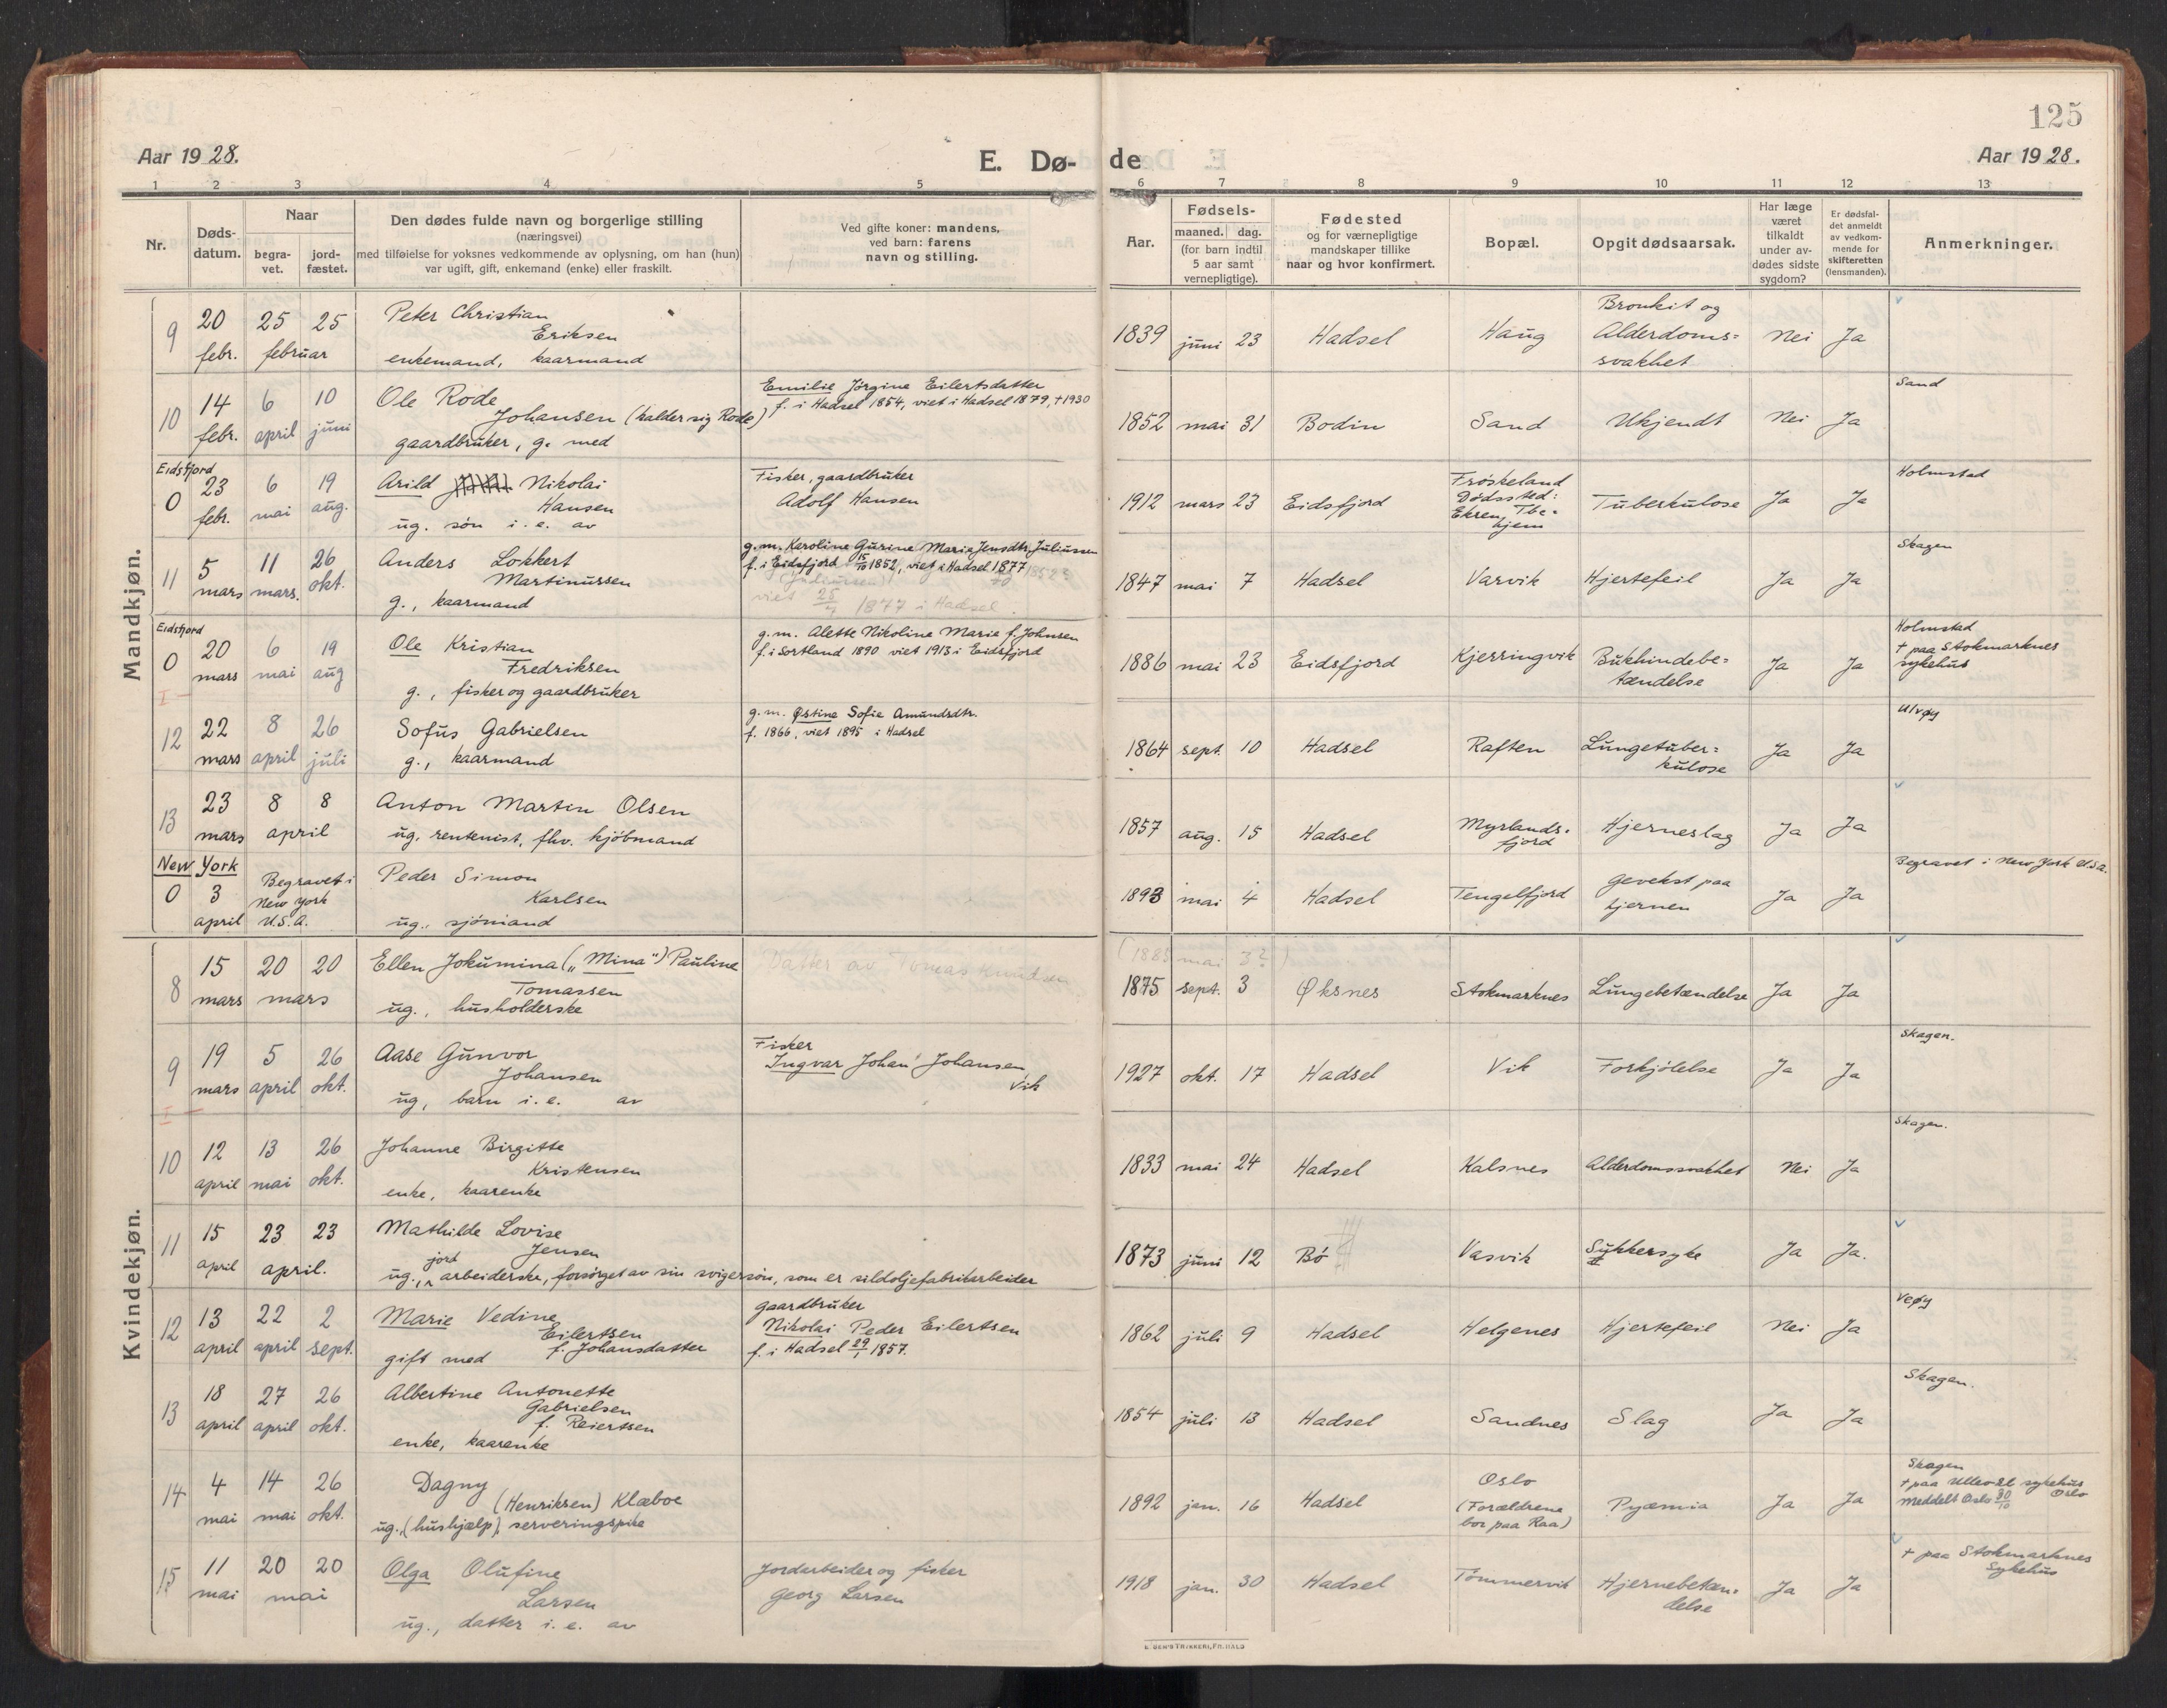 125
Aar 1928.
E. Dø-
de
Aar 1928.
1 2 3 4 5 6 7 8 9 10 11 12 13
Nr.
Døds-
datum.
Naar
begra-
vet.
jord-
fæstet.
Den dødes fulde navn og borgerlige stilling
(næringsvei)
med tilføielse for voksnes vedkommende av oplysning, om han (hun)
var ugift, gift, enkemand (enke) eller fraskilt.
Ved gifte koner: mandens,
ved barn: farens
navn og stilling.
Aar.
Fødsels-
maaned. dag.
(for barn indtil
5 aar samt
vernepligtige).
Fødested
og for værnepligtige
mandskaper tillike
naar og hvor konfirmert.
Bopæl.
Opgit dødsaarsak.
Har læge
været
tilkaldt
under av-
dødes sidste
sygdom?
Er dødsfal-
det anmeldt
av vedkom-
mende for
skifteretten
(lensmanden).
Anmerkninger.
Mandkjøn.
9
20
febr.
25 25
februar
Peter Christian
Eriksen
enkemand, kaarmand
1839 juni 23
Hadsel
Haug
Bronkit og
Alderdoms-
svakhet
Nei Ja
10
14
febr.
6
april
10
juni
Ole Rode
Johansen (kalder sig Rode)
gaardbruker, g. med
Emilie Jørgine Eilertsdatter
f. i Hadsel 1854, viet i Hadsel 1879, †1930
1852 mai 31
Bodin
Sand
Ukjendt
Nei Ja
Sand
Eidsfjord
0
23
febr.
6
mai
19
aug.
Arild Nikolai
Hansen
ug. søn i. e. av
Fisker, gaardbruker
Adolf Hansen
1912 mars 23
Eidsfjord
Frøskeland
Dødssted:
Ekren, Tbc-
hjem
Tuberkulose
Ja Ja
Holmstad
11
5
mars
11
mars.
26
okt.
Anders Lokkert
Martinussen
g., kaarmand
g. m. Karoline Gurine Maria Jensdtr. Juliussen
f. i Eidsfjord 15/10 1852, viet i Hadsel 1877
viet 25/4 1877 i Hadsel.
1847 mai 7
Hadsel
Varvik
Hjertefeil
Ja Ja
Skagen
Eidsfjord
0
20
mars
6
mai
19
aug
Ole Kristian
Fredriksen
g., fisker og gaardbruker
g. m. Alette Nikoline Marie f. Johnsen
f. i Sortland 1890 viet 1913 i Eidsfjord
1886 mai 23
Eidsfjord
Kjerringvik
Bukhindebe-
tændelse
Ja Ja
Holmstad
† paa Stokmarknes
sykehus
12
22
mars
8
april
26
juli
Sofus Gabrielsen
g., kaarmand
g. m. Østine Sofie Amundsdtr.
f. 1866, viet 1895 i Hadsel
1864 sept. 10
Hadsel
Raften
Lungetuber-
kulose
Ja Ja
Ulvøy
13
23
mars
8 8
april
Anton Martin Olsen
ug. rentenist, fhv. kjöbmand
1857 aug. 15
Hadsel
Myrlands-
fjord
Hjerneslag
Ja Ja
New York
0
3
april
Begravet i
New York
U.S.A.
Peder Simon
Karlsen
ug., sjömand
1893 mai 4
Hadsel
Tengelfjord
Gevekst paa
hjernen
Ja Ja
Begravet i New York U.S.A.
Kvindekjøn.
8
15
mars
20 20
mars
Ellen Jokumina („Mina") Pauline
Tomassen
ug., husholderske
Datter av Tomas Knudsen
(1885 mai 3?)
1875 sept. 3
Øksnes
Stokmarknes
Lungebetændelse
Ja Ja
9
19
mars
5
april
26
okt.
Aase Gunvor
Johansen
ug, barn i. e. av
Fisker
Ingvar Johan Johansen
Vik
1927 okt. 17
Hadsel
Vik
Forkjölelse
Ja Ja
Skagen.
10
12
april
13
mai
26
okt.
Johanne Birgitte
Kristensen
enke, kaarenke
1833 mai 24
Hadsel
Kalsnes
Alderdomssvakhet
Nei Ja
Skagen.
11
15
april
23 23
april.
Mathilde Lovise
Jensen
ug., jord arbeiderske, forsörget av sin svigersön, som er sildoljefabrikarbeider
1873 juni 12
Bö
Vasvik
Sukkersyke
Ja Ja.
12
13
april
22
april
2
sept.
Marie Vedine
Eilertsen
gift med f. Johansdatter
Gaardbruker
Nikolai Peder Eilertsen
f. i Hadsel 29/1 1857.
1862 juli 9
Hadsel
Helgenes
Hjertefeil
Nei Ja
Veøy
13
18
april
27
april
26
okt.
Albertine Antonette
Gabrielsen
f. Reiertsen
enke, kaarenke
1854 juli 13
Hadsel
Sandnes
Slag
Ja Ja
Skagen.
14
4
mai
14
mai
26
okt.
Dagny
(Henriksen) Klæboe
ug., (hushjælp), serveringspike
1892 jan. 16
Hadsel
Oslo
(Forældrene
bor paa Raa)
Pyæmia
Ja Ja
Skagen
† paa Ullevål sykehus
Oslo
meddelt Oslo 30/10
15
11
mai
20 20
mai
Olga Olufine
Larsen
ug., datter i. e. av
Jordarbeider og fisker
Georg Larsen
1918 jan. 30
Hadsel
Tömmervik
Hjernebetæn-
delse
Ja Ja
† paa Stokmarknes
Sykehus